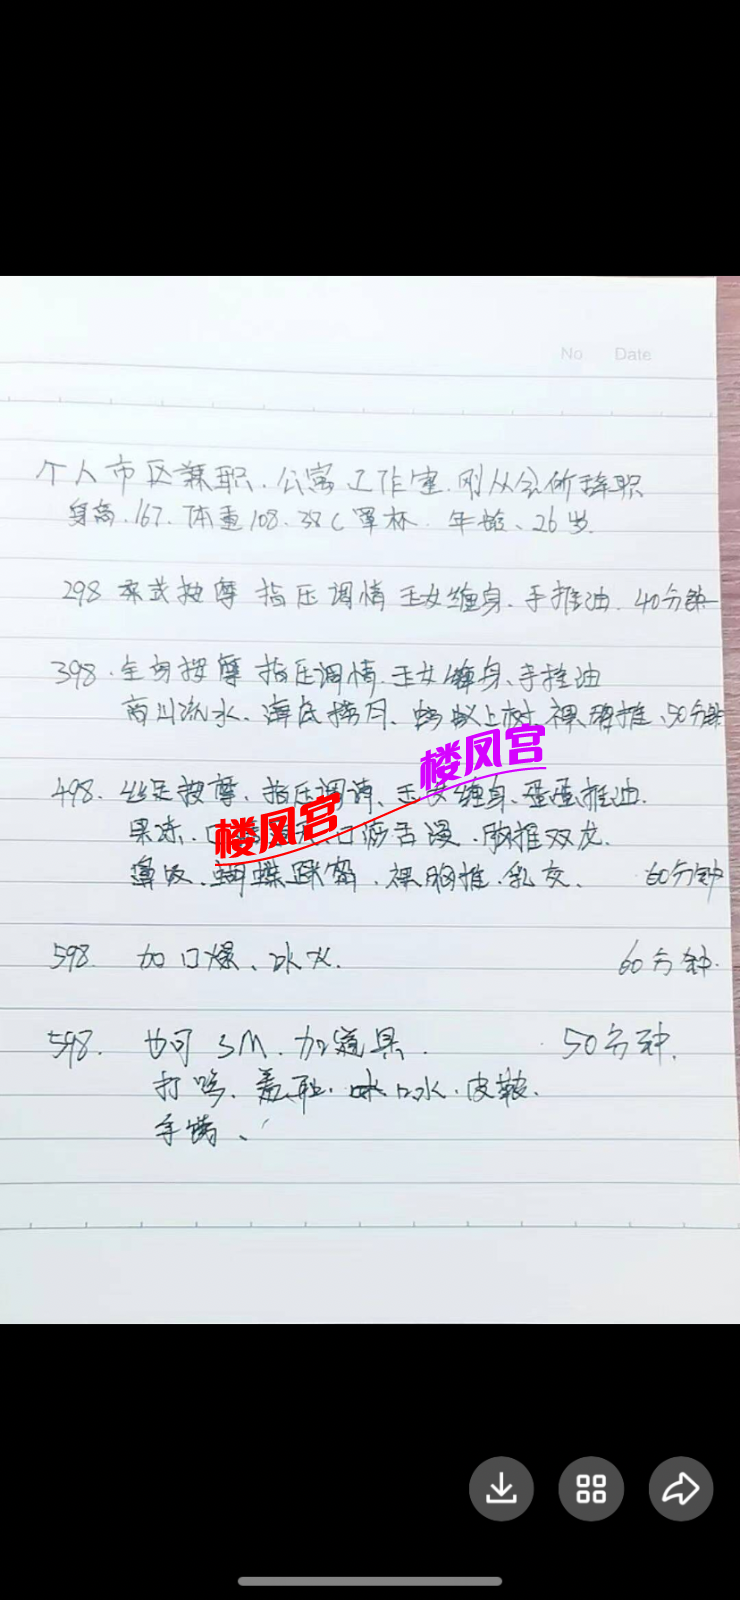 No Date
个人市区兼职.公寓工作室.刚从会所辞职
身高.167.体重108.38C罩杯.年龄、26岁.
298 泰式按摩 指压调情 玉女缠身.手推油.40分钟
398.全身按摩 指压调情.玉女缠身、手推油
高山流水、海底捞月、蚂蚁上树.裸胸推、50分钟
498.丝足按摩.指压调情、玉女缠身、蛋蛋推油.
果冻.口舌漫.胸推双龙.
蝴蝶.裸胸推.乳交. 60分钟
598. 加口爆、冰火. 60分钟.
598. 也可SM.加道具. 50分钟.
打.羞耻.口水.皮鞭.
手铐、
楼凤宫
楼凤宫